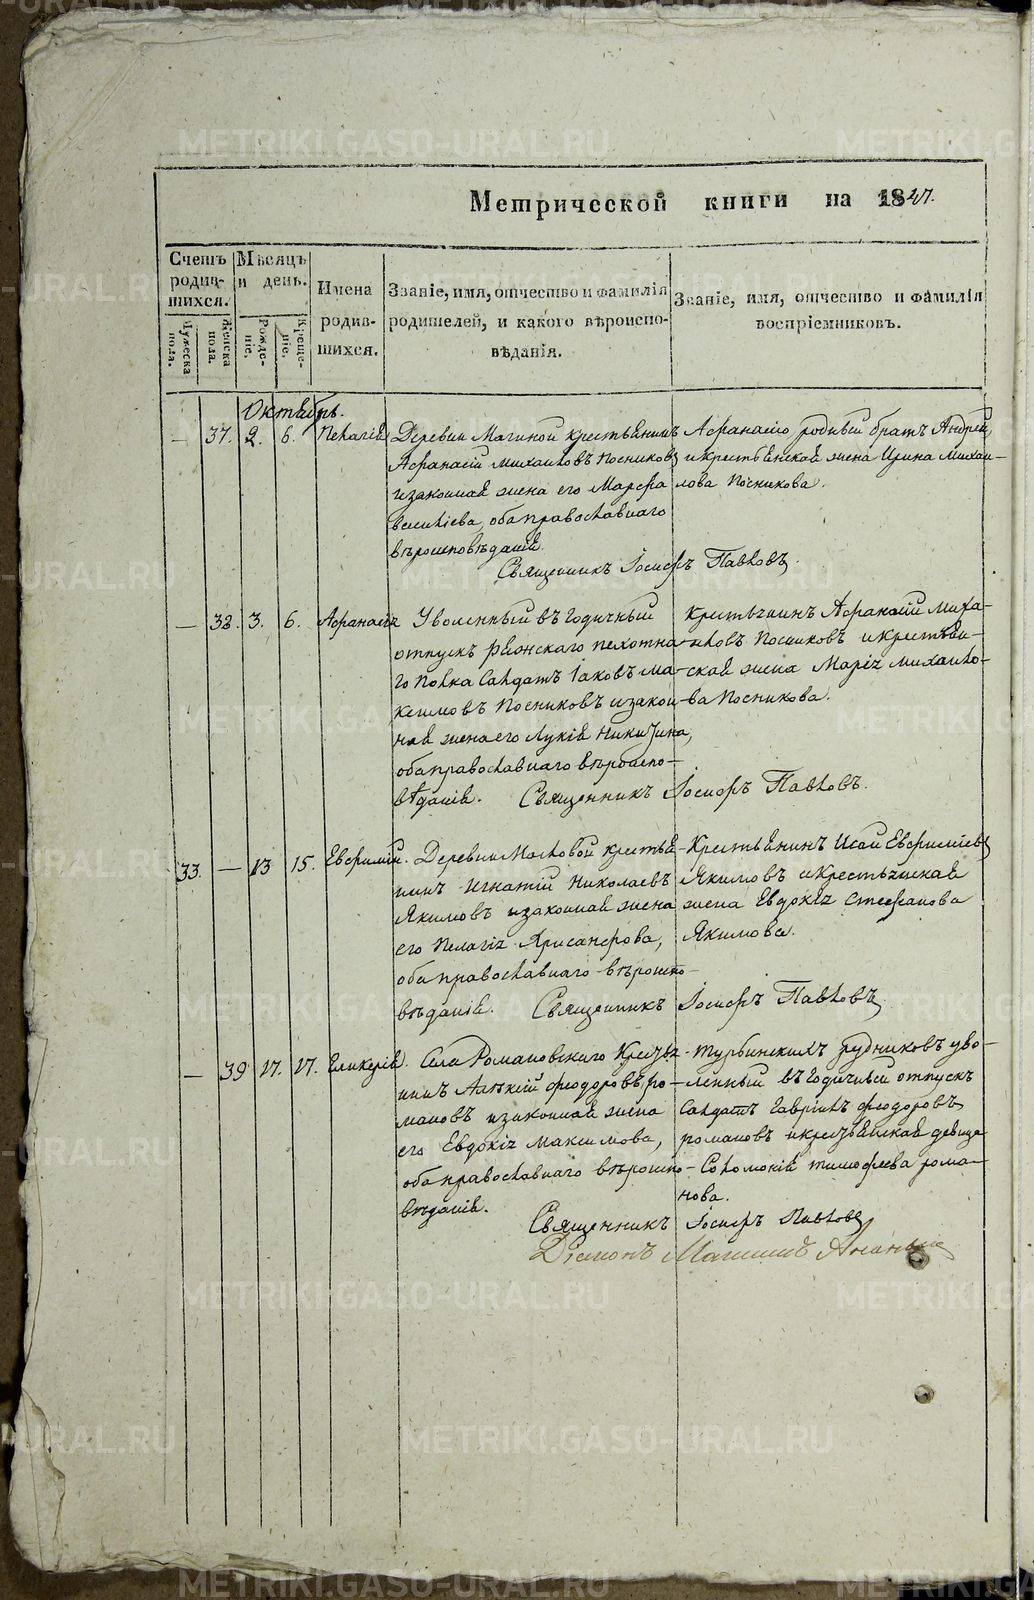 Метрической книги на 1847.
Счетъ родив-шихся.
Мѣсяцъ и день.
Имена родив-шихся.
Званіе, имя, отчество и фамилія родителей, и какого вѣроиспо-вѣданія.
Званіе, имя, отчество и фамилія воспріемниковъ.
Мужеска пола.
Женска пола.
Рожде-ніе.
Креще-ніе.
Октябрь.
— 37. 2. 6. Пелагія
Деревни Магиной крестьянинъ
Афанасій Михаиловъ Посниковъ
и законная жена его Марфа
Василіева, оба православнаго
вѣроисповѣданія.
Афанасію родный братъ Андрей,
и крестьянская жена Ирина Михаи-
лова Посникова.
Священникъ Іосифъ Павловъ.
— 38. 3. 6. Афанасія
Уволенный въ годичный
отпускъ Ряжскаго пехотна-
го полка Салдатъ Іаковъ Ма-
ксимовъ Посниковъ и закон-
ная жена его Лукія Никитина,
оба православнаго вѣроиспо-
вѣданія.
Крестьянинъ Афанасій Миха-
иловъ Посниковъ и крестьян-
ская жена Марія Михаило-
ва Посникова.
Священникъ Іосифъ Павловъ.
33. — 13 15. Евфимій.
Деревни Малковой крестья-
нинъ Игнатій Николаевъ
Якимовъ и законная жена
его Пелагія Хрисанфова,
оба православнаго вѣроиспо-
вѣданія.
Крестьянинъ Исай Евфиміевъ
Якимовъ и крестьянская
жена Евдокія Стефанова
Якимова.
Священникъ Іосифъ Павловъ
— 39 17. 17. Гликерія.
Села Романовскаго Крестья-
нинъ Алѣкѣй Феодоровъ Ро-
мановъ и законная жена
его Евдокія Максимова,
оба православнаго вѣроиспо-
вѣданія.
Турьинскихъ Рудниковъ уво-
ленный въ годичный отпускъ
Салдатъ Гавріилъ Феодоровъ
Романовъ и крестьянская девица
Соломонія Тимофеева Рома-
нова.
Священникъ Іосифъ Павловъ
Діаконъ
METRIKI.GASO-URAL.RU